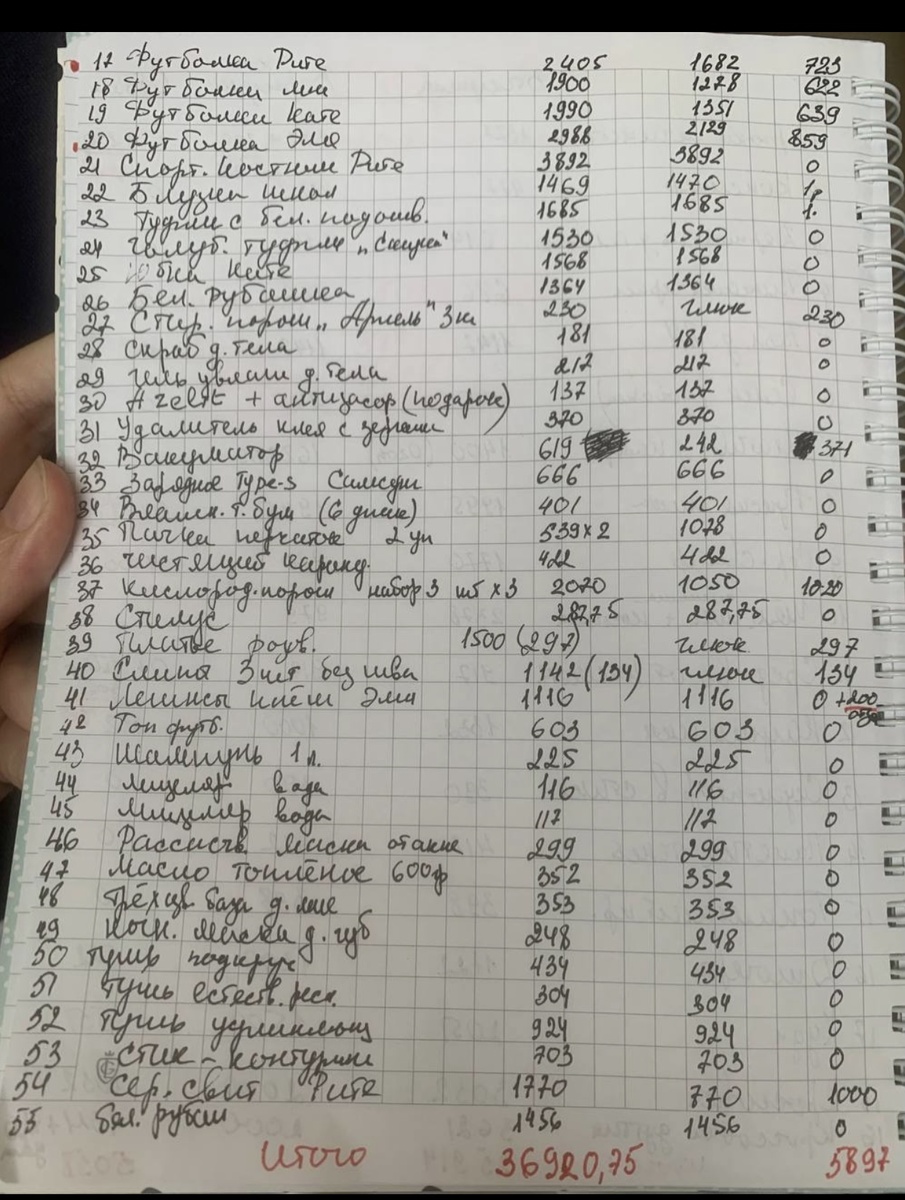 17 Футболка Рите 2405 1682 723
18 Футболки мии 1900 1278 622
19 Футболки Кате 1990 1351 639
20 Футболка Эмо 2988 2129 859
21 Спорт. костюм Рите 3892 3892 0
22 Блузки школ 1469 1470 1р
23 Туфли с бел. подошв. 1685 1685 1.
24 Голуб. туфли 1530 1530 0
25 Юбка Кате 1568 1568 0
26 Бел. рубашка 1364 1364 0
27 Стир. порош „Ариель" 3кг 230 глюк 230
28 Скраб д. тела 181 181 0
29 гель увлаж д. тела 217 217 0
30 + антизасор (подарок) 137 137 0
31 Удалитель клея с 370 370 0
32 Вакууматор 619 242 371
33 Зарядное Type-s 666 666 0
34 Влажн. т. бум (6 ) 401 401 0
35 Пачка перчаток 2 уп 539×2 1078 0
36 чистящий каранд. 422 422 0
37 Кислород. порош набор 3 шт ×3 2070 1050 1020
38 Стилус 287,75 287,75 0
39 Платье розв. 1500 (297) глюк 297
40 Слипы 3 шт без шва 1142 (134) глюк 134
41 Легинсы Эми 1116 1116 0 +200
42 Топ футб. 603 603 0
43 Шампунь 1 л. 225 225 0
44 мицеляр вода 116 116 0
45 Мицеляр вода 117 117 0
46 маски 299 299 0
47 Масло топлёное 600гр 352 352 0
48 Трёхцв база д. лиц 353 353 0
49 ночн. маска д. губ 248 248 0
50 Тушь подкруч 434 434 0
51 Тушь естеств. ресн. 304 304 0
52 Тушь удлиняющ 924 924 0
53 Стик - контуринг 703 703 0
54 Сер. свит Рите 1770 770 1000
55 бел. рубаш 1456 1456 0
Итого 36920,75 5897